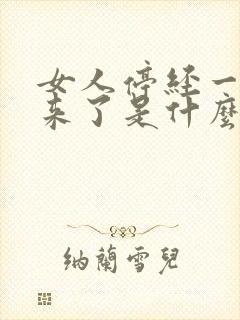 女人停经一
来了是什麼
纳蘭雪兒